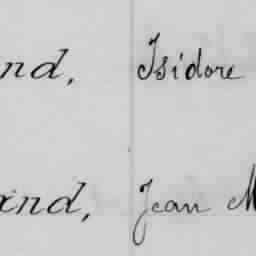 nd, Isidore
and, Jean M